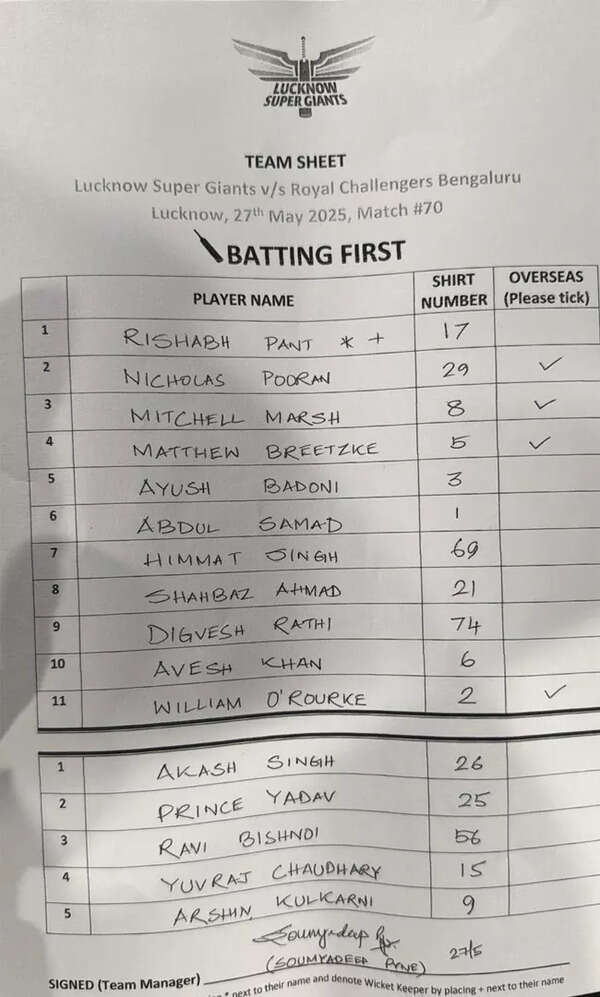 LUCKNOW
SUPER GIANTS
TEAM SHEET
Lucknow Super Giants v/s Royal Challengers Bengaluru
Lucknow, 27th May 2025, Match #70
BATTING FIRST
PLAYER NAME SHIRT NUMBER OVERSEAS (Please tick)
1 RISHABH PANT * + 17
2 NICHOLAS POORAN 29 ✓
3 MITCHELL MARSH 8 ✓
4 MATTHEW BREETZKE 5 ✓
5 AYUSH BADONI 3
6 ABDUL SAMAD 1
7 HIMMAT SINGH 69
8 SHAHBAZ AHMAD 21
9 DIGVESH RATHI 74
10 AVESH KHAN 6
11 WILLIAM O'ROURKE 2 ✓
1 AKASH SINGH 26
2 PRINCE YADAV 25
3 RAVI BISHNOI 56
4 YUVRAJ CHAUDHARY 15
5 ARSHIN KULKARNI 9
Soumyadeep
(SOUMYADEEP PYNE) 27/5
SIGNED (Team Manager)
* next to their name and denote Wicket Keeper by placing + next to their name